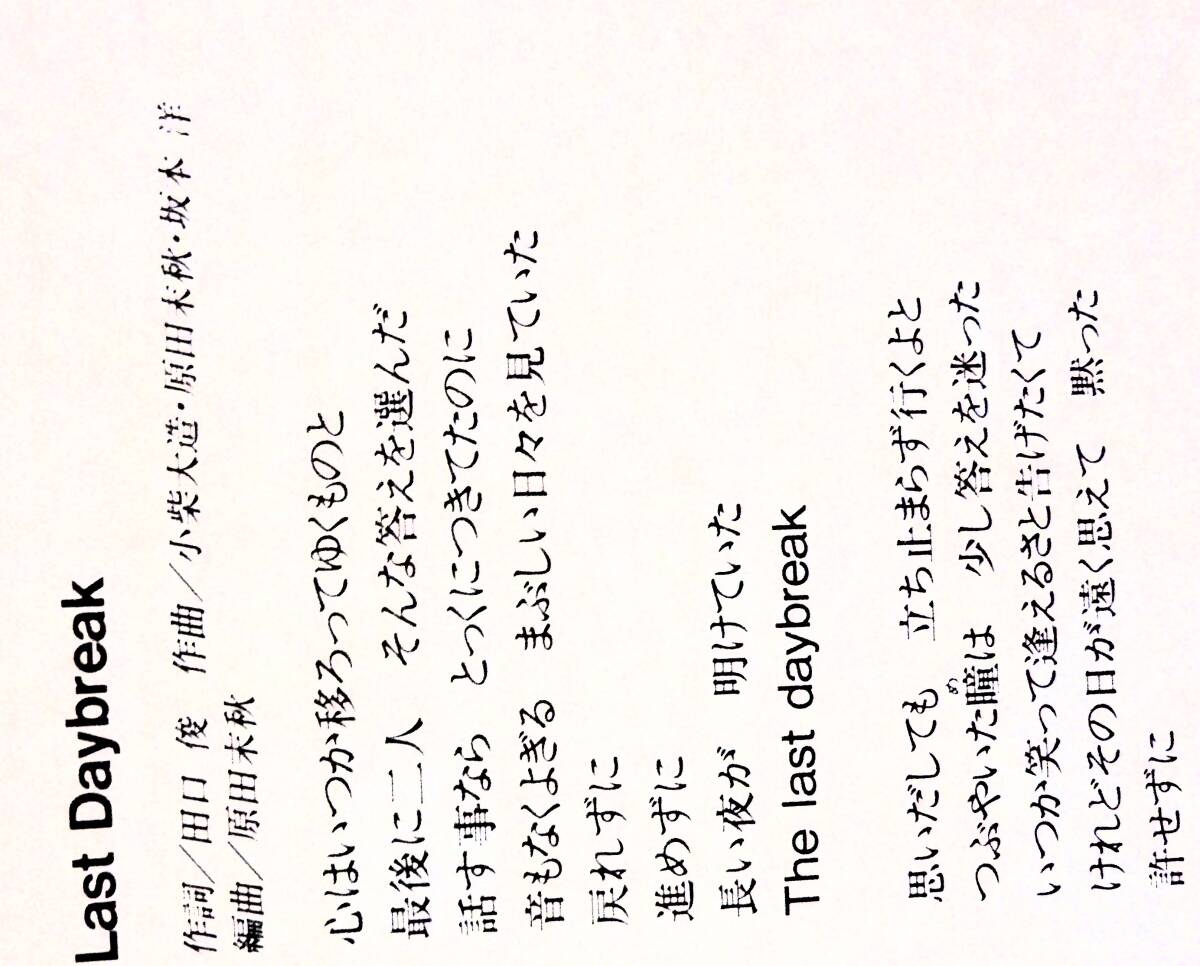 Last Daybreak
作詞／田口 俊　作曲／小柴大造・原田末秋・坂本 洋
編曲／原田末秋
心はいつか移ろってゆくものと
最後に二人　そんな答えを選んだ
話す事なら　とっくにつきてたのに
音もなくよぎる　まぶしい日々を見ていた
戻れずに
進めずに
長い夜が　明けていた
The last daybreak
思いだしても　立ち止まらず行くよと
め
つぶやいた瞳は　少し答えを迷った
いつか笑って逢えるさと告げたくて
けれどその日が遠く思えて　黙った
許せずに